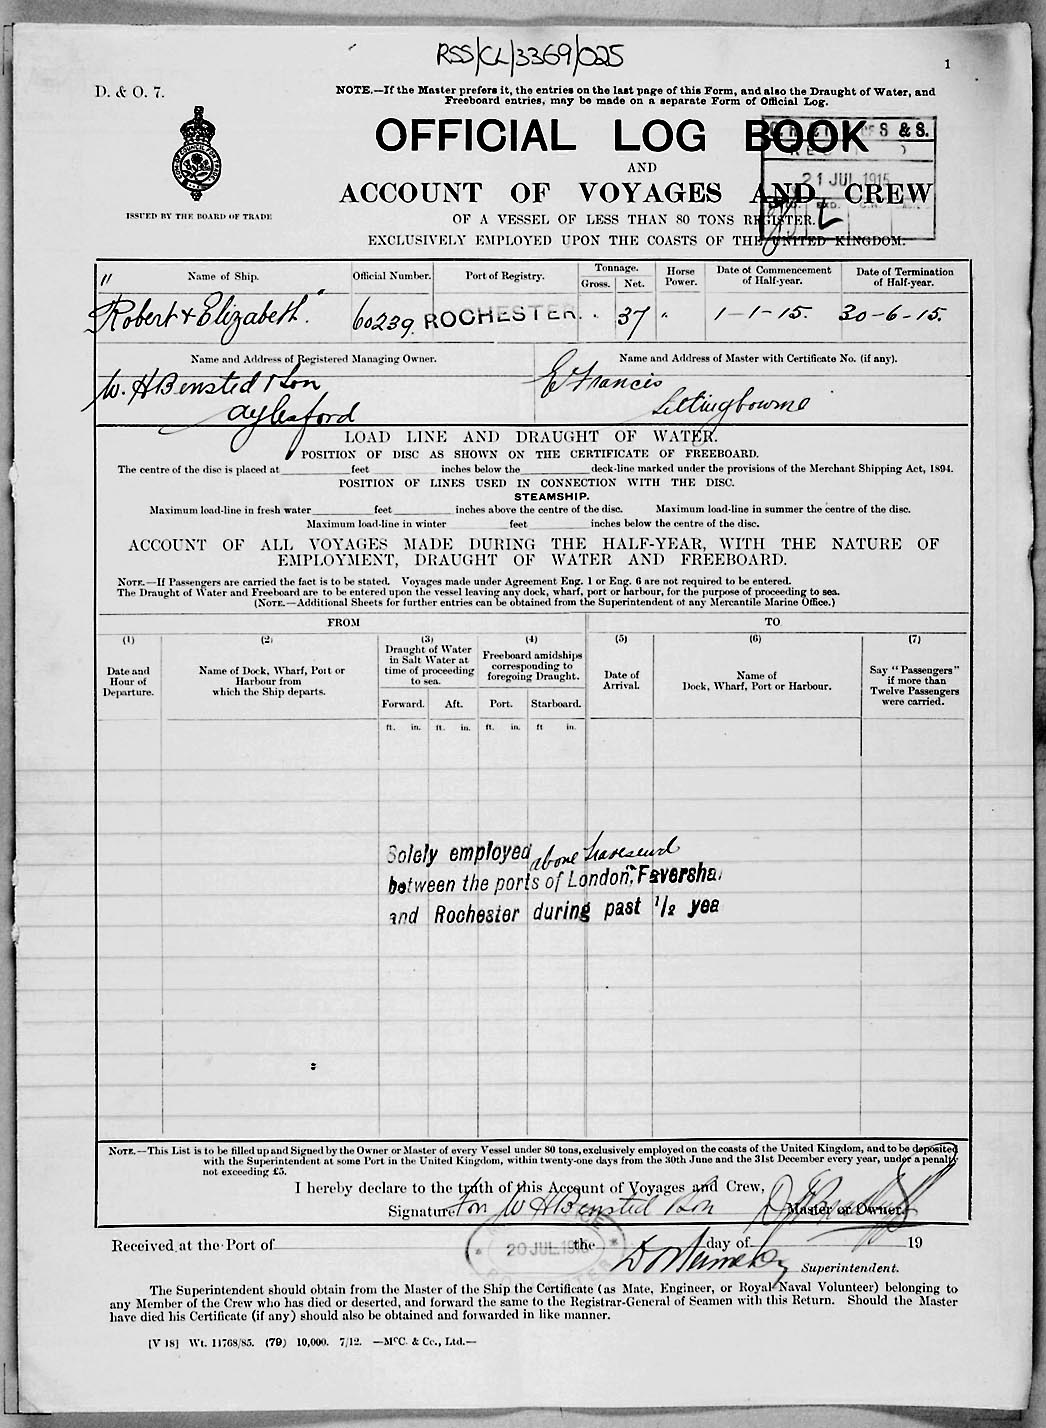 RSS/CL/3369/025
1
D. & O. 7.
NOTE.—If the Master prefers it, the entries on the last page of this Form, and also the Draught of Water, and
Freeboard entries, may be made on a separate Form of Official Log.
OFFICIAL LOG BOOK
AND
ACCOUNT OF VOYAGES AND CREW
OF A VESSEL OF LESS THAN 80 TONS REGISTER.
EXCLUSIVELY EMPLOYED UPON THE COASTS OF THE UNITED KINGDOM.
S & S.
21 JUL 1915
ISSUED BY THE BOARD OF TRADE
Name of Ship. Official Number. Port of Registry. Tonnage. Gross. Net. Horse Power. Date of Commencement of Half-year. Date of Termination of Half-year.
"Robert & Elizabeth" 60239. ROCHESTER. " 37 " 1-1-15. 30-6-15.
Name and Address of Registered Managing Owner. Name and Address of Master with Certificate No. (if any).
W. H Bensted & Son E Francis
Aylesford Sittingbourne
LOAD LINE AND DRAUGHT OF WATER.
POSITION OF DISC AS SHOWN ON THE CERTIFICATE OF FREEBOARD.
The centre of the disc is placed at feet inches below the deck-line marked under the provisions of the Merchant Shipping Act, 1894.
POSITION OF LINES USED IN CONNECTION WITH THE DISC.
STEAMSHIP.
Maximum load-line in fresh water feet inches above the centre of the disc. Maximum load-line in summer the centre of the disc.
Maximum load-line in winter feet inches below the centre of the disc.
ACCOUNT OF ALL VOYAGES MADE DURING THE HALF-YEAR, WITH THE NATURE OF
EMPLOYMENT, DRAUGHT OF WATER AND FREEBOARD.
NOTE.—If Passengers are carried the fact is to be stated. Voyages made under Agreement Eng. 1 or Eng. 6 are not required to be entered.
The Draught of Water and Freeboard are to be entered upon the vessel leaving any dock, wharf, port or harbour, for the purpose of proceeding to sea.
(NOTE.—Additional Sheets for further entries can be obtained from the Superintendent of any Mercantile Marine Office.)
FROM TO
(1) (2) (3) (4) (5) (6) (7)
Date and Hour of Departure.
Name of Dock, Wharf, Port or Harbour from which the Ship departs.
Draught of Water in Salt Water at time of proceeding to sea.
Freeboard amidships corresponding to foregoing Draught.
Date of Arrival.
Name of Dock, Wharf, Port or Harbour.
Say "Passengers" if more than Twelve Passengers were carried.
Forward. Aft. Port. Starboard.
ft. in. ft. in. ft. in. ft in.
Solely employed above Gravesend
between the ports of London, Faversha
and Rochester during past 1/2 yea
NOTE.—This List is to be filled up and Signed by the Owner or Master of every Vessel under 80 tons, exclusively employed on the coasts of the United Kingdom, and to be deposited
with the Superintendent at some Port in the United Kingdom, within twenty-one days from the 30th June and the 31st December every year, under a penalty
not exceeding £5.
I hereby declare to the truth of this Account of Voyages and Crew,
Signature For W H Bensted & Son Master or Owner.
Received at the Port of the day of 19
20 JUL 1915
Superintendent.
The Superintendent should obtain from the Master of the Ship the Certificate (as Mate, Engineer, or Royal Naval Volunteer) belonging to
any Member of the Crew who has died or deserted, and forward the same to the Registrar-General of Seamen with this Return. Should the Master
have died his Certificate (if any) should also be obtained and forwarded in like manner.
[V 18] Wt. 11768/85. (79) 10,000. 7/12. —McC. & Co., Ltd.—